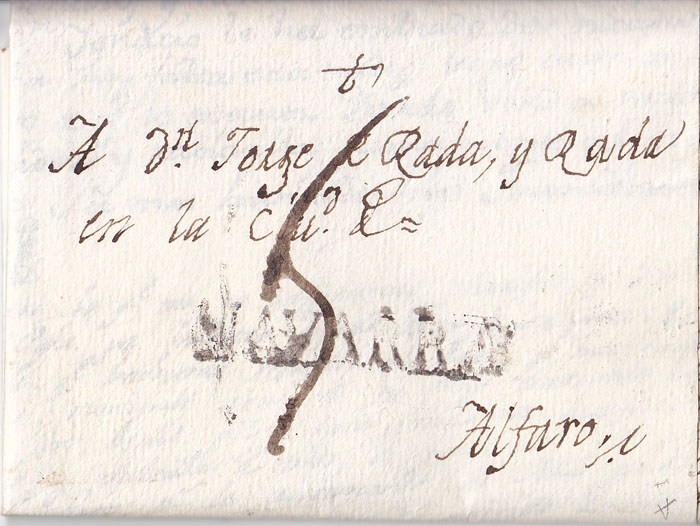 A Dn. Jorge de Rada, y Rada
en la Ciud. de
5
NAVARRA
Alfaro